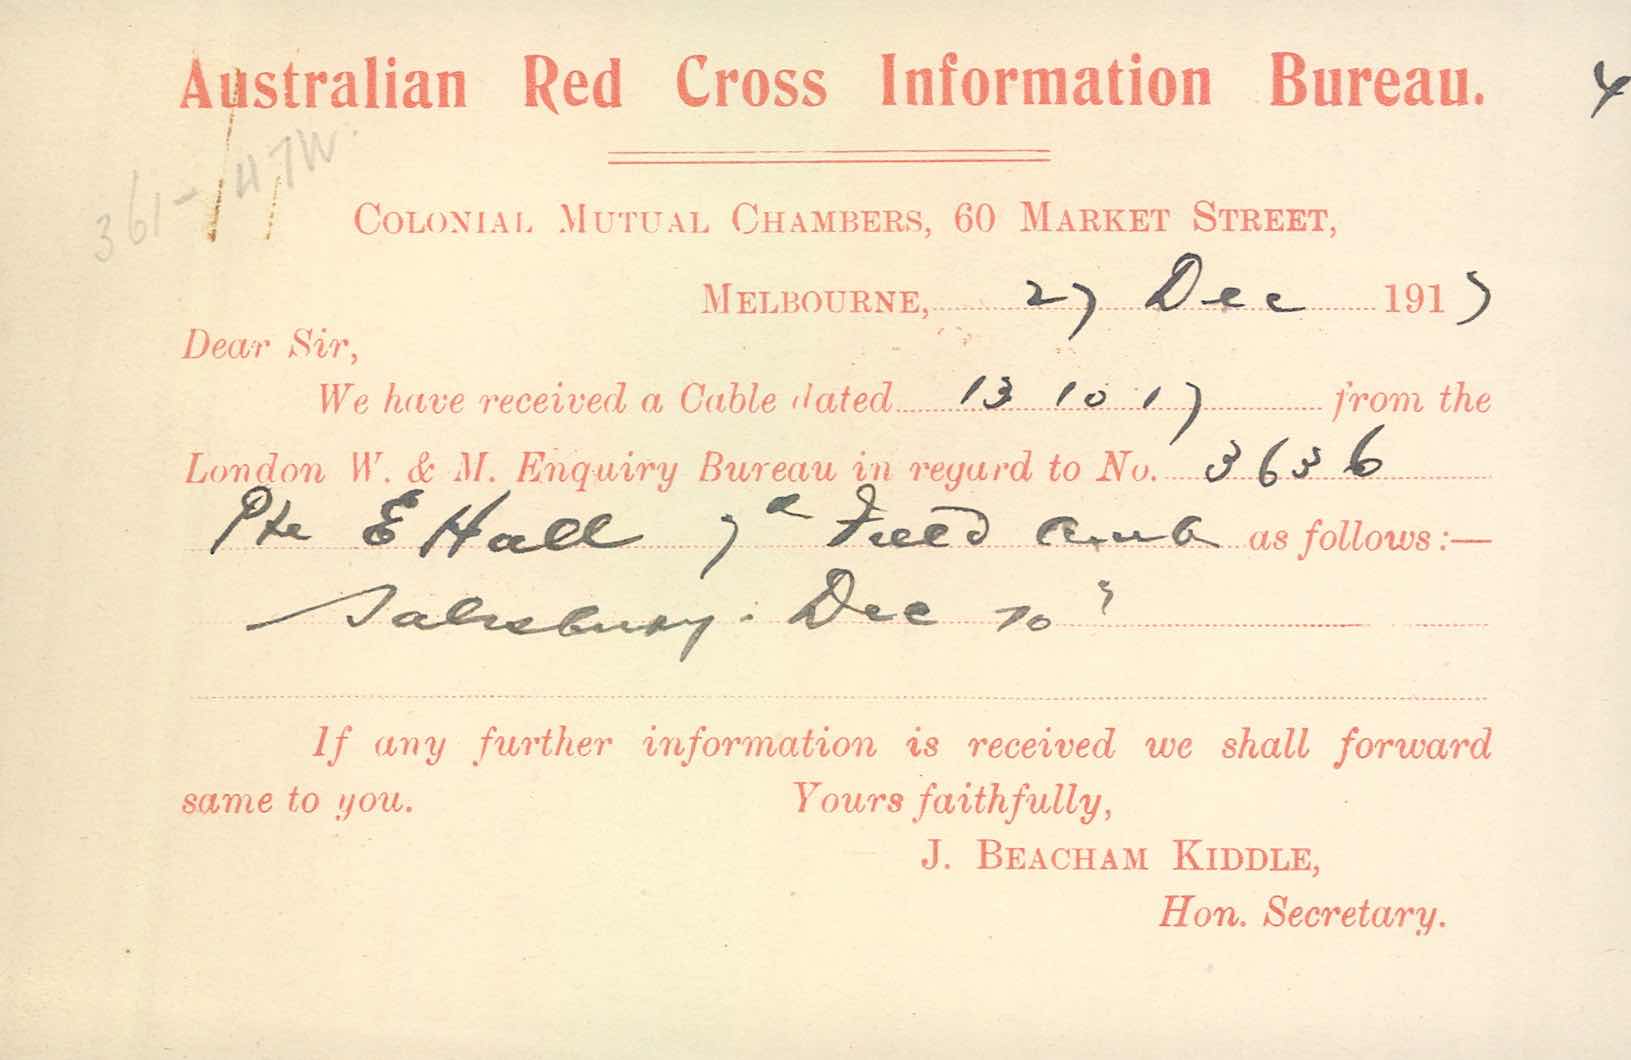 Australian Red Cross Information Bureau. 4
361-147W.
COLONIAL MUTUAL CHAMBERS, 60 MARKET STREET,
MELBOURNE, 27 Dec 1917
Dear Sir,
We have received a Cable dated 13 10 17 from the
London W. & M. Enquiry Bureau in regard to No. 3636
Pte E Hall 7 Field Amb as follows:—
Salisbury. Dec 10
If any further information is received we shall forward
same to you. Yours faithfully,
J. BEACHAM KIDDLE,
Hon. Secretary.